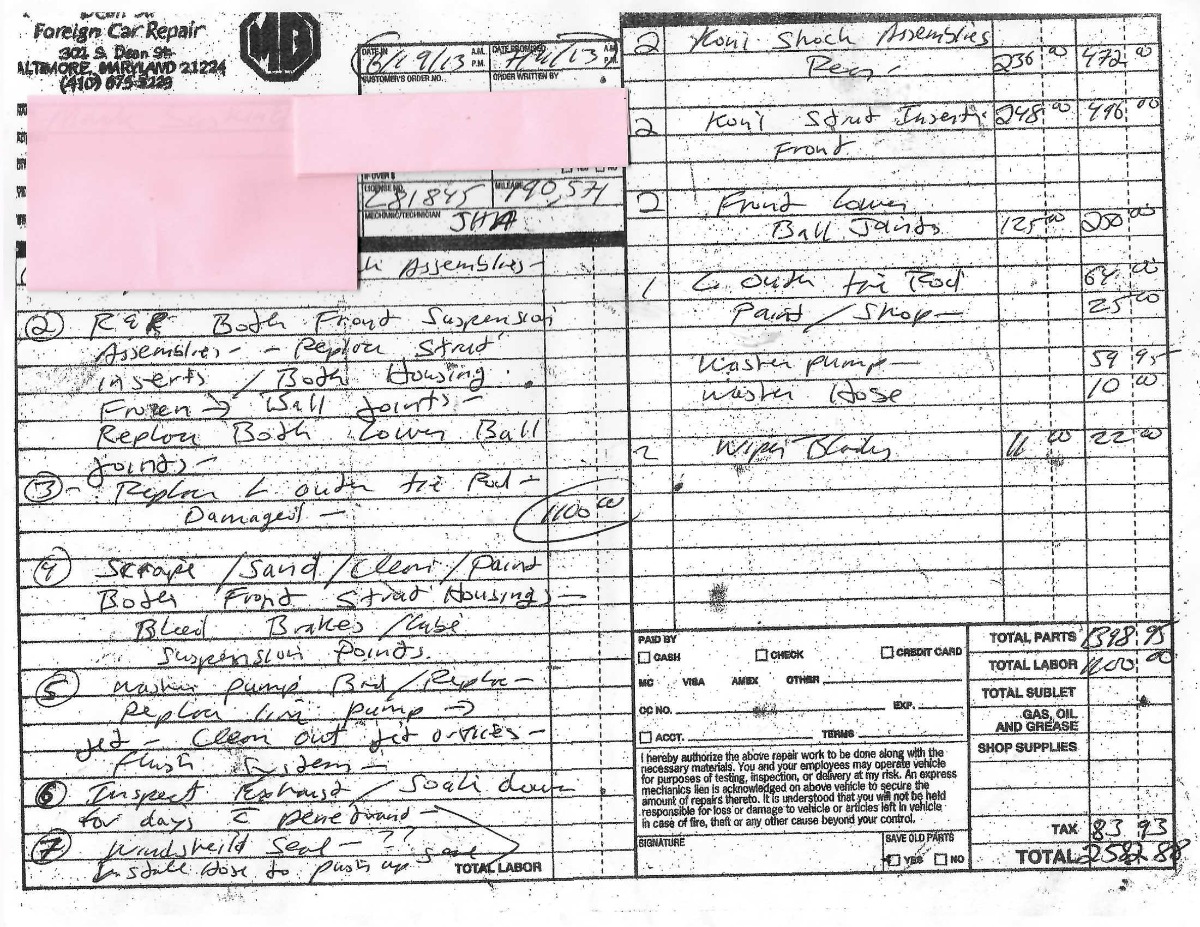 Foreign Car Repair
302 S. Dean St.
ALTIMORE, MARYLAND 21224
(410) 675-
MG
DATE IN
6/19/13
A.M.
P.M.
DATE PROMISED
A.M.
P.M.
CUSTOMER'S ORDER NO.
ORDER WRITTEN BY
IF OVER $
LICENSE NO.
281845
MILEAGE
190,571
MECHANIC/TECHNICIAN
JHA
Assemblies -
② R & R Both Front Suspension
Assemblies - - Replace Strut
inserts / Both Housing
Frozen → Ball joints -
Replace Both Lower Ball
joints -
③ - Replace L outer tie Rod -
Damaged -
1100 00
④ Scrape / Sand / Clean / Paint
Both Front Strut Housings -
Bleed Brakes / Lube
Suspension Points
⑤ Washer pump Bad / Replace -
Replace line pump →
jet - Clean out jet orifices -
Flush System -
⑥ Inspect Exhaust / Soak down
for days c penetrant
⑦ Windsheild Seal - ??
Install Hose to push up seal
TOTAL LABOR
2 Koni Shock Assemblies
Rear 236 00 472 00
2 Koni Strut Inserts 248 00 496 00
Front
2 Front Lower
Ball Joints 125 00 250 00
1 L outer tie Rod 64 00
Paint / Shop - 25 00
Washer pump - 59 95
Washer Hose 10 00
2 Wiper Blades 11 00 22 00
PAID BY
CASH CHECK CREDIT CARD
MC VISA AMEX OTHER
CC NO. EXP.
ACCT. TERMS
I hereby authorize the above repair work to be done along with the
necessary materials. You and your employees may operate vehicle
for purposes of testing, inspection, or delivery at my risk. An express
mechanics lien is acknowledged on above vehicle to secure the
amount of repairs thereto. It is understood that you will not be held
responsible for loss or damage to vehicle or articles left in vehicle
in case of fire, theft or any other cause beyond your control.
SIGNATURE
SAVE OLD PARTS
YES NO
TOTAL PARTS 1398.95
TOTAL LABOR 1100 00
TOTAL SUBLET
GAS, OIL
AND GREASE
SHOP SUPPLIES
TAX 83.93
TOTAL 2582 88